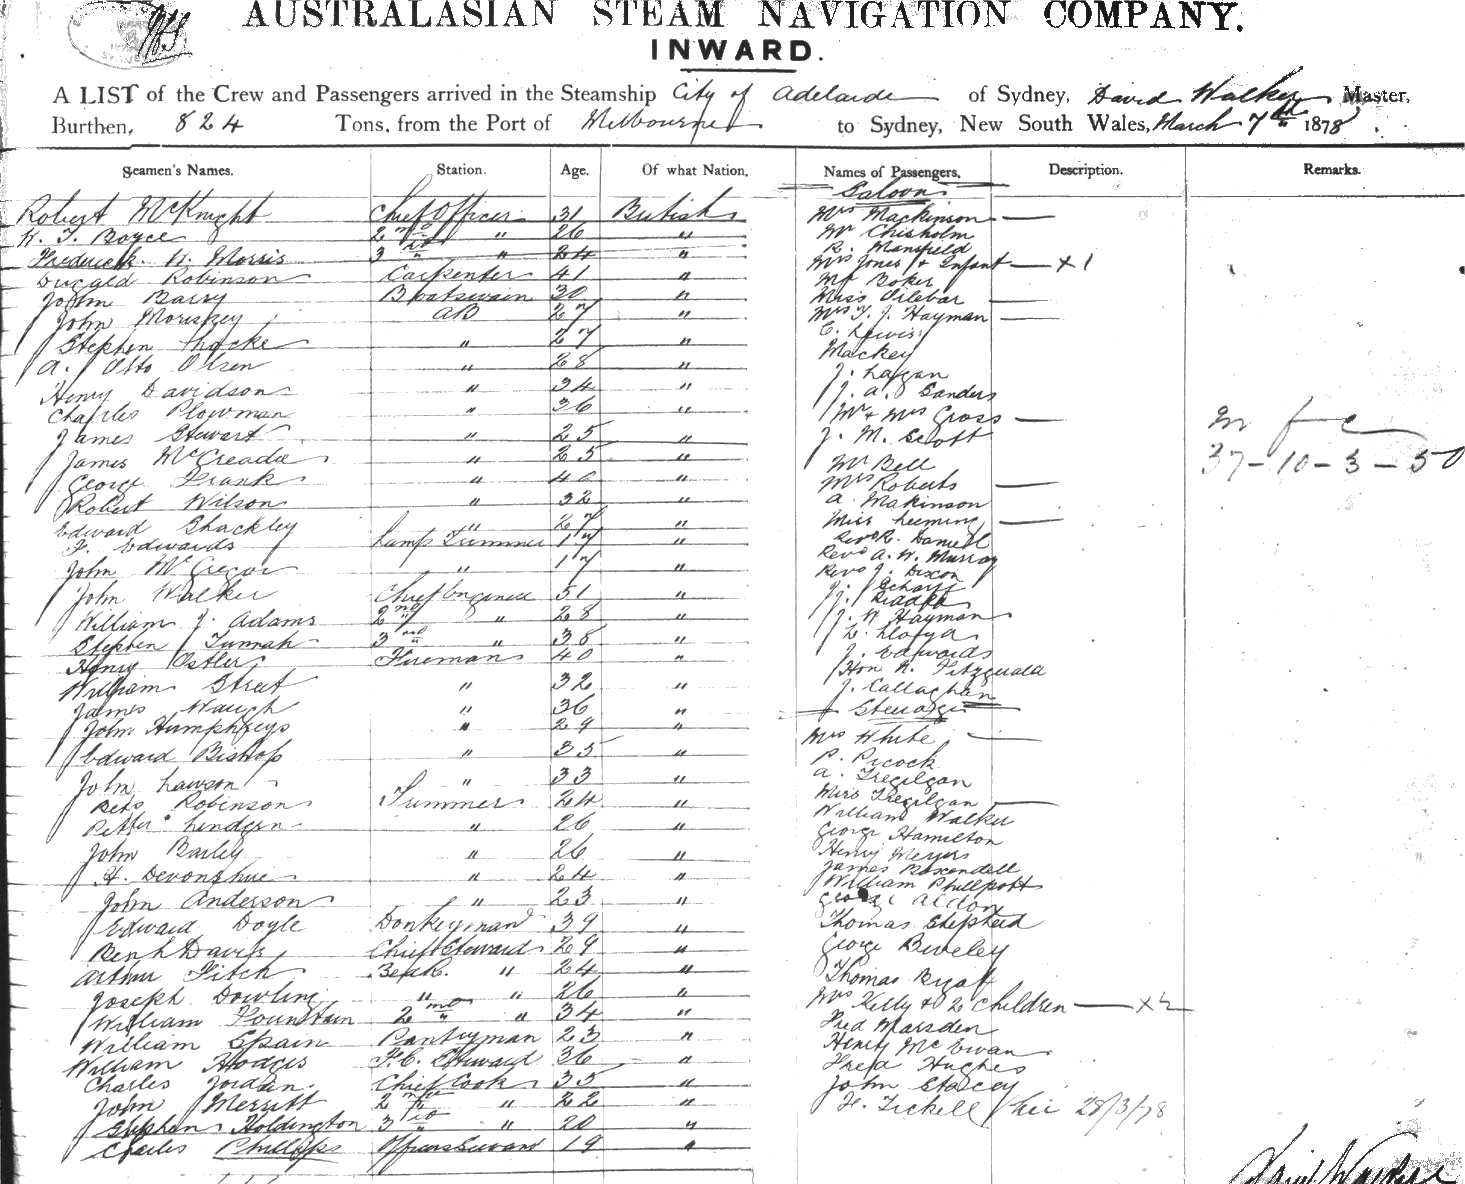 AUSTRALASIAN STEAM NAVIGATION COMPANY.
INWARD.
A LIST of the Crew and Passengers arrived in the Steamship City of Adelaide of Sydney, David Walker, Master,
Burthen, 824 Tons, from the Port of Melbourne to Sydney, New South Wales, March 7th 1878.
Seamen's Names. Station. Age. Of what Nation.
Robert McKnight Chief Officer 31 British
W. T. Boyce 2nd " 26 "
Frederick W. Morris 3rd " 24 "
Dugald Robinson Carpenter 41 "
John Barry Boatswain 30 "
John Morissey AB 27 "
Stephen " 27 "
A. Otto Olsen " 28 "
Henry Davidson " 34 "
Charles Plowman " 36 "
James Stewart " 25 "
James McCreadie " 25 "
George Frank " 40 "
Robert Wilson " 32 "
Edward Shackley " 27 "
F. Edwards Lamp Trimmer 17 "
John McGregor " 17 "
John Walker Chief Engineer 51 "
William J. Adams 2nd " 28 "
Stephen Tunnah 3rd " 38 "
Henry Ostler Fireman 40 "
William Street " 32 "
James Waugh " 36 "
John Humphreys " 29 "
Edward Bishop " 35 "
John Lawson " 33 "
Robinson Trimmer 24 "
Peter Lindgren " 26 "
John Barley " 26 "
H. Devonshire " 24 "
John Anderson " 23 "
Edward Doyle Donkeyman 39 "
Benh Davis Chief Steward 29 "
Arthur Fitch " 24 "
Joseph Dowling " " 26 "
William Fountain 2nd " 34 "
William Spain Pantryman 23 "
William Hodges F.C. Steward 36 "
Charles Jordan Chief Cook 35 "
John Merritt 2nd " 22 "
Stephen Holdington 3rd " 20 "
Charles Phillips Officers Servant 19 "
Names of Passengers. Description. Remarks.
Saloon
Mrs Mackinson
Mr Chisholm
R. Mansfield
Mrs Jones & Infant x 1
Mr Boker
Miss Vilebar
Mrs T. J. Hayman
C. Lewis
Mackey
J. Lagan
J. A. Sanders
Mr & Mrs Cross
J. M. Scott
Mr Bell
Mrs Roberts
A. Makinson
Miss Leeming
Revd R. Daniell
Revd A. W. Murray
Revd J. Dixon
J. Scharff
J.
J. W Hayman
L. Lloyd
J. Edwards
Hon N. Fitzgerald
J. Callaghan
Steerage
Mrs White
P. Picock
A. Tregilgan
Miss Tregilgan
William Walker
George Hamilton
Henry Meyers
James Boscondell
William Phillpott
George Alldon
Thomas Shepherd
George Beveley
Thomas Ryal
Mrs Kelly & 2 Children x 2
Fred Marsden
Henry McEwan
Fred Hughes
John Stacey
H. Tickell 28/3/78
m f c
37-10-3-50